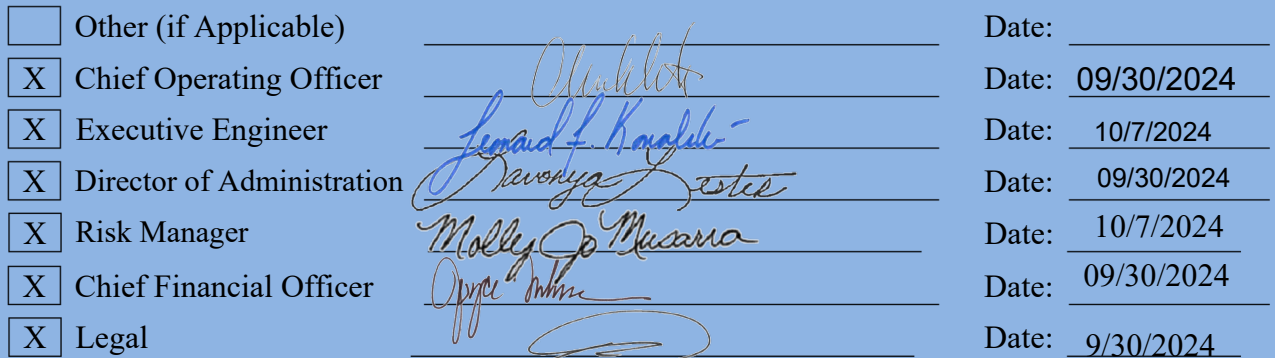 Other (if Applicable) Date:
X Chief Operating Officer Date: 09/30/2024
X Executive Engineer Leonard F. Date: 10/7/2024
X Director of Administration Lavonya Lester Date: 09/30/2024
X Risk Manager Molly Jo Musarra Date: 10/7/2024
X Chief Financial Officer Date: 09/30/2024
X Legal Date: 9/30/2024